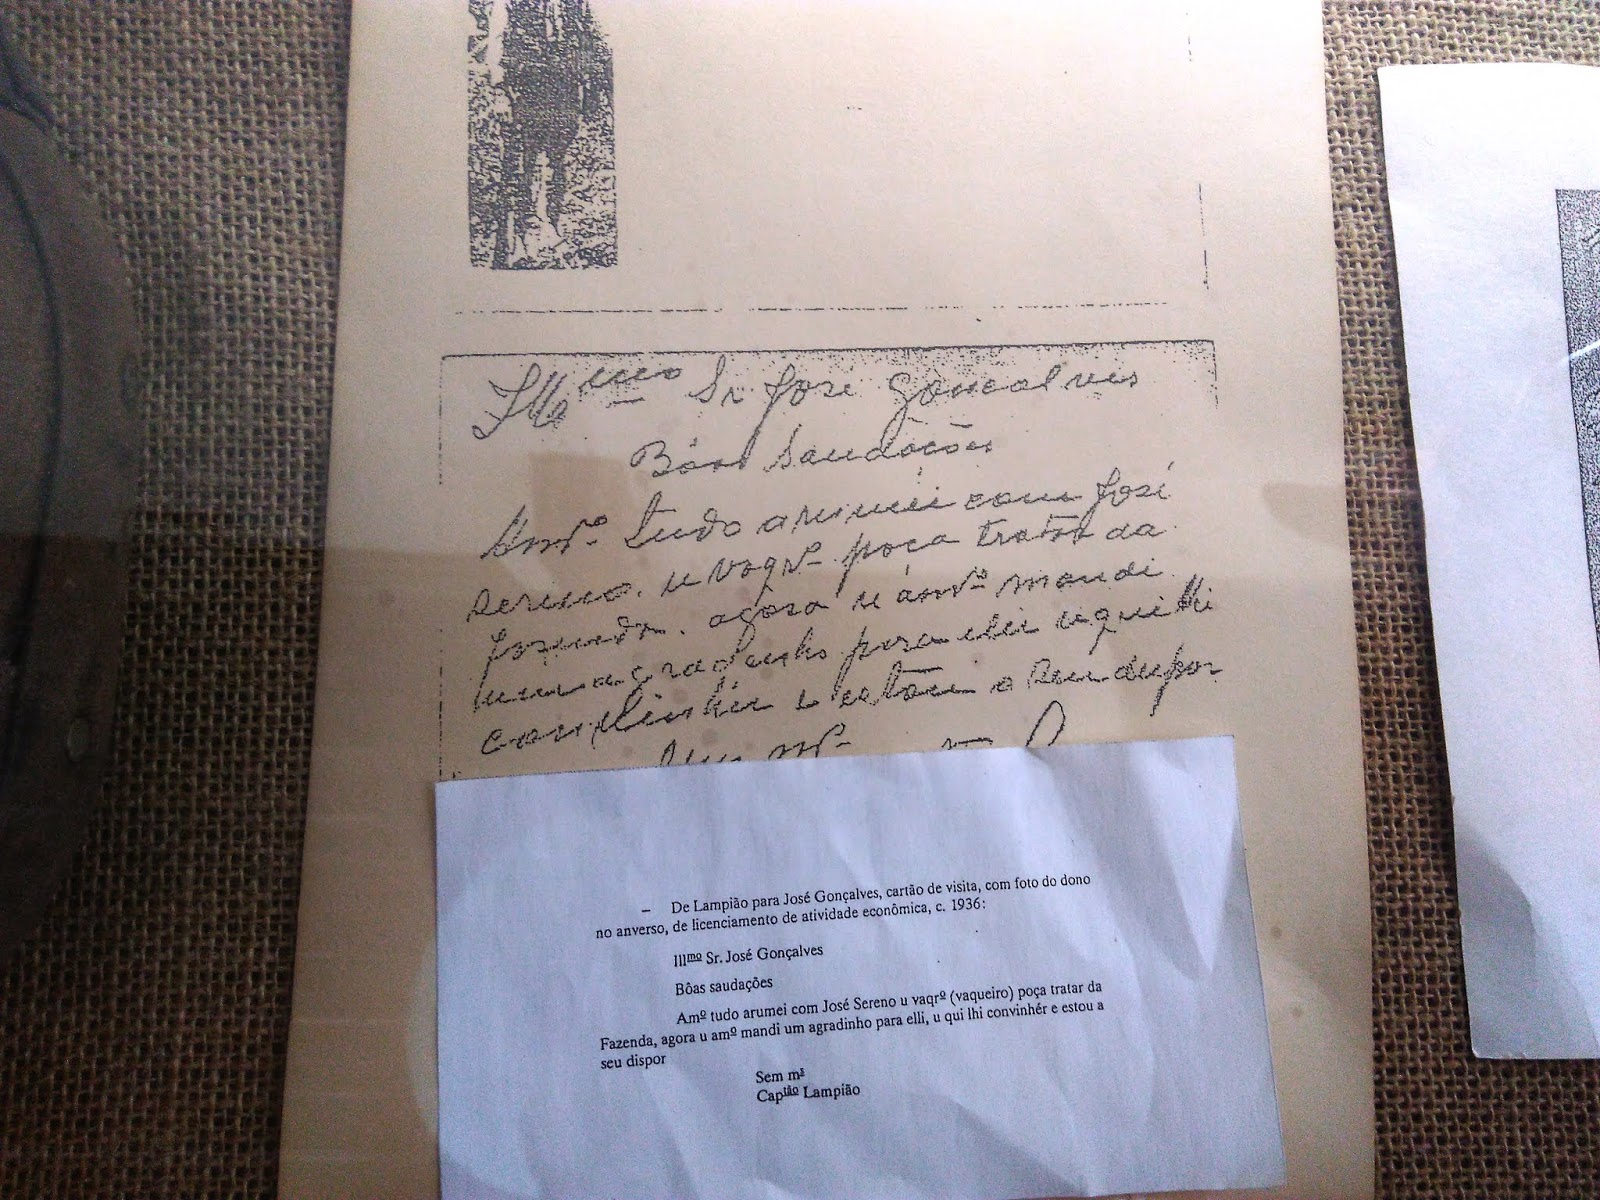 Illmo Sr José Gonçalves
Bôas Saudações
Amº tudo arumei com José
Sereno. u vaqrº poça tratar da
fazenda. agora u amº mandi
um agradinho para elli u qui lhi
convinhér e estou a seu dispor
Sem mª
– De Lampião para José Gonçalves, cartão de visita, com foto do dono
no anverso, de licenciamento de atividade econômica, c. 1936:
Illmo Sr. José Gonçalves
Bôas saudações
Amº tudo arumei com José Sereno u vaqrº (vaqueiro) poça tratar da
Fazenda, agora u amº mandi um agradinho para elli, u qui lhi convinhér e estou a
seu dispor
Sem mª
Captão Lampião